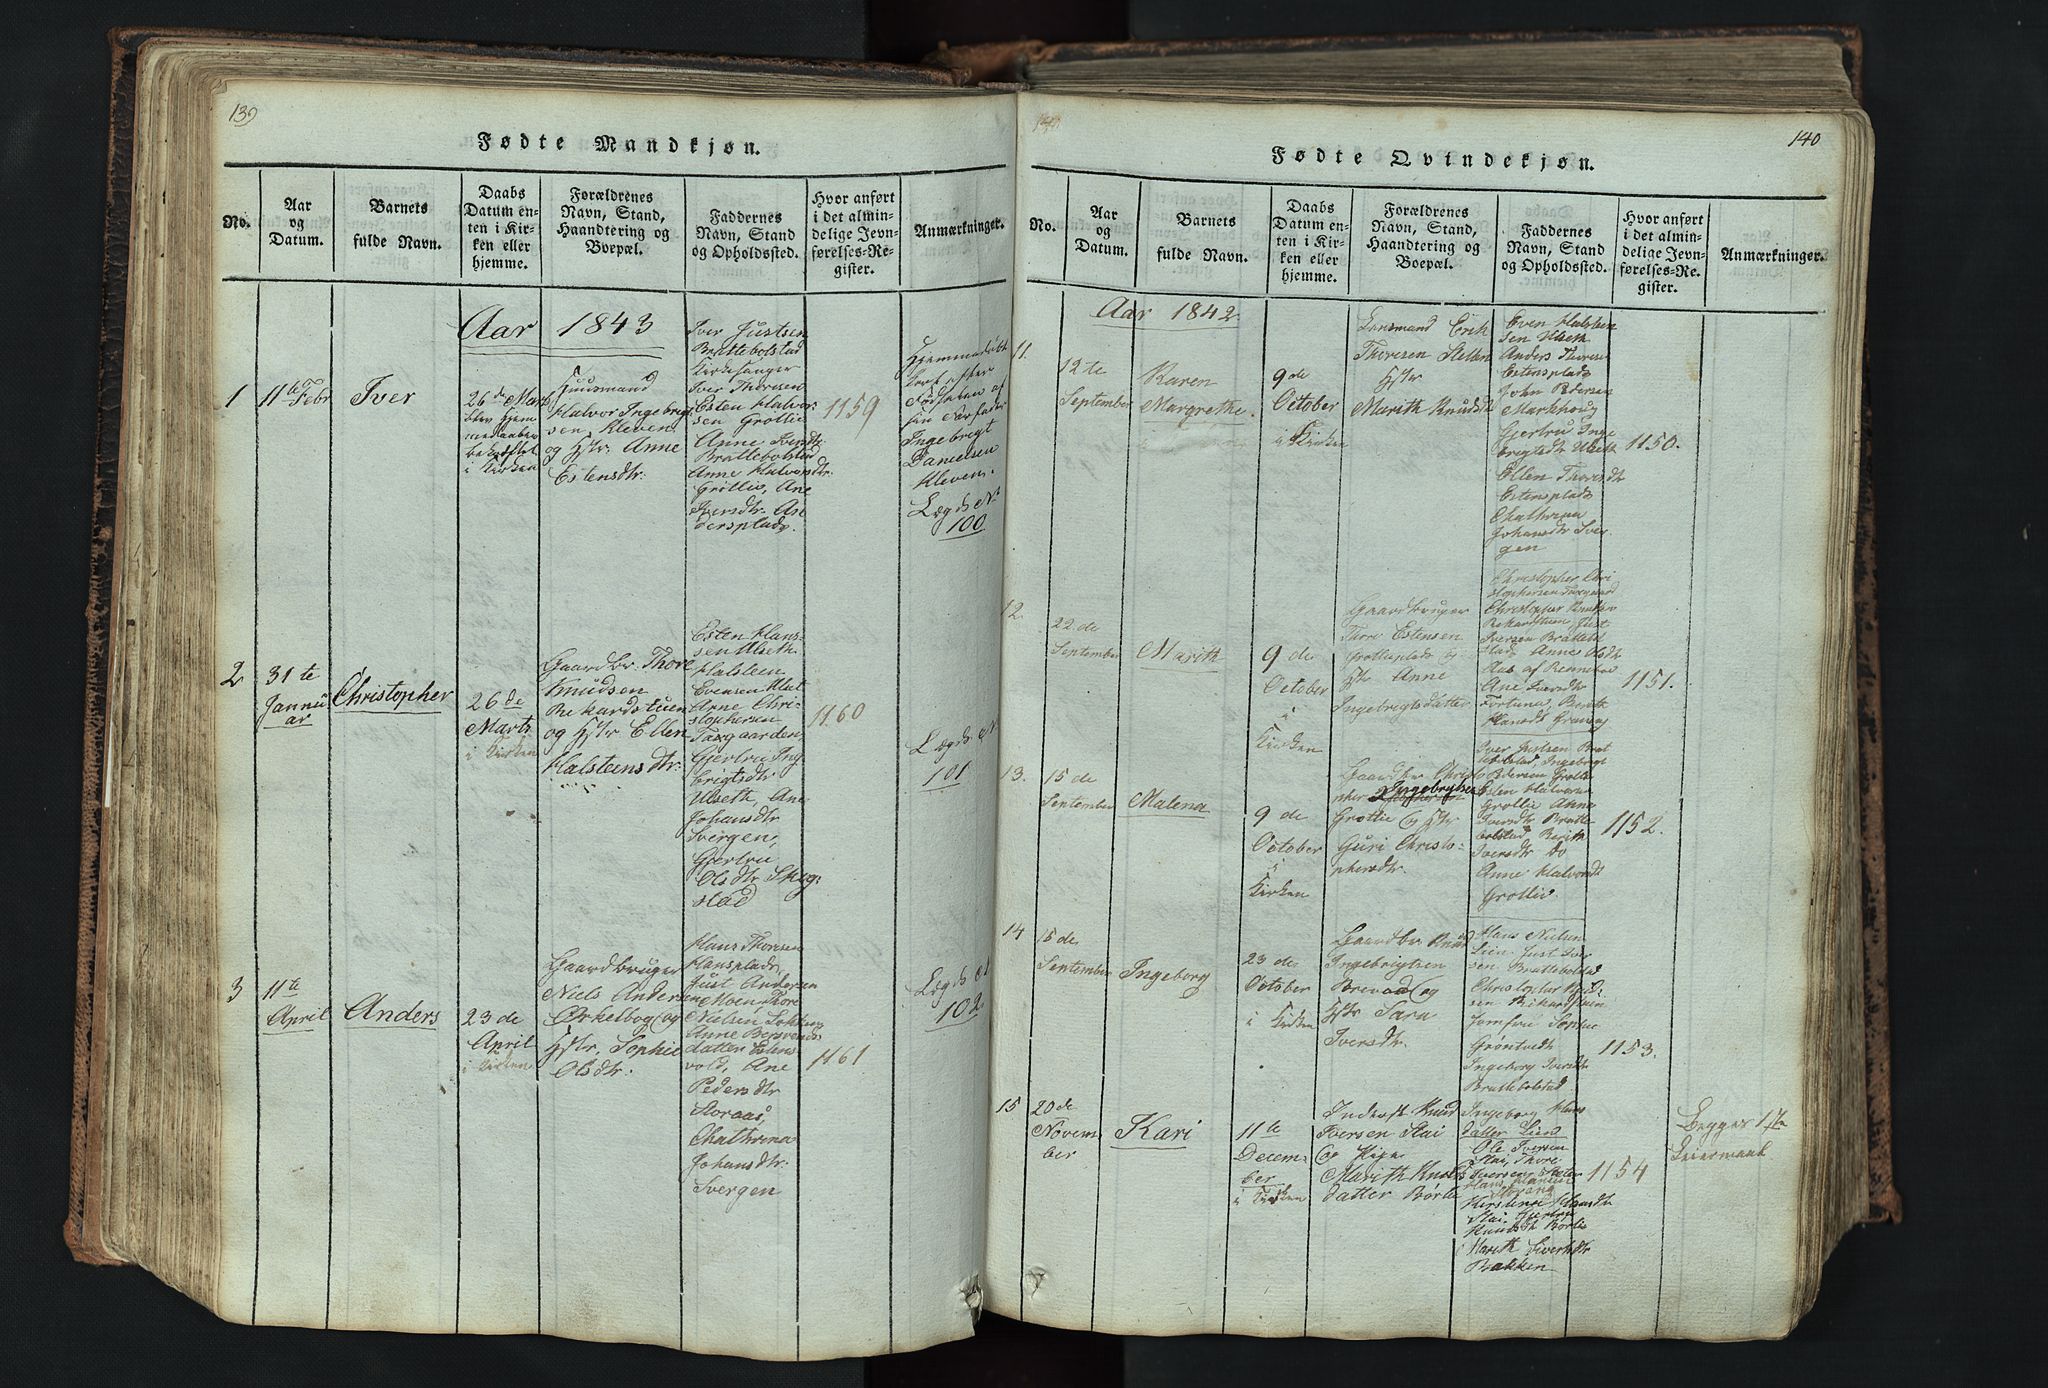 139
Fødte Mandkjøn.
No.
Aar
og
Datum.
Barnets
fulde Navn.
Daabs
Datum en-
ten i Kir-
ken eller
hjemme.
Forældrenes
Navn, Stand,
Haandtering og
Boepæl.
Faddernes
Navn, Stand
og Opholdssted.
Hvor anført
i det almin-
delige Jevn-
førelses-Re-
gister.
Anmærkninger.
Aar 1843
1
11te Febr
Iver
26de Marts
i Kirken
Huusmand
Halvor Ingebrigt
sen Kleven
og Hstr. Anne
Estensdtr.
Iver Justsen
Brattebolstad
Kirkesanger
Iver Thoresen
Esten Halvor
sen Grøtlie
Anne Iversdtr
Brattebolstad
Anne Halvorsdtr.
Grøtlie, Ane
Iversdtr. An
dersplads.
1159
Hjemmedøbt
strax efter
Fødselen af
sin Morfader
Ingebrigt
Danielsen
Kleven.
Lægds No
100
2
31te
Janu
ar
Christopher
26de
Marts
i Kirken
Gaardbr Thore
Knudsen
Rekardstuen
og Hstr Ellen
Halsteensdtr.
Esten Hans-
sen Ulseth
Halsteen
Evensen Ulset
Arne Chri-
stophersen
Taxgaarden
Gjertru Ing
brigtsdtr
Ulseth, Ane
Johansdtr
Svergen,
Gjertru
Olsdtr Skog-
stad
1160
Lægds No
101
3
11te
April
Anders
23de
April
i Kirken
Gaardbruger
Niels Andersen
Orkelbog og
Hstr. Sophie
Olsdtr.
Hans Thoresen
Hansplads,
Just Andersen
Moen Thore
Nielsen Løkken
Anne
datter
vold, Ane
Pedersdtr
Storaas,
Chathrina
Johansdtr.
Svergen
1161
Lægds No
102
140
Fødte Qvindekjøn.
No.
Aar
og
Datum.
Barnets
fulde Navn.
Daabs
Datum en-
ten i Kir-
ken eller
hjemme.
Forældrenes
Navn, Stand,
Haandtering og
Boepæl.
Faddernes
Navn, Stand
og Opholdssted.
Hvor anført
i det almin-
delige Jevn-
førelses-Re-
gister.
Anmærkninger.
Aar 1842.
11.
12te
September
Karen
Margrethe.
9de
October
i Kirken
Lensmand Erik
Thoresen Stellen
Hstr
Marith Knudsdtr
Even Halsteen
sen Ulseth
Anders Thores
Estensplads
John Pedersen
Markhoug
Gjertru Inge
brigtsdtr Ulseth
Ellen Thoresdtr
Estensplads
Chathrina
Johansdtr Sver-
gen
1150.
12.
22de
September
Marith
9de
October
i
Kirken
Gaardbruger
Thore Estensen
Grøtlieplads og
Hstr Anne
Ingebrigtsdatter
Christopher Chri
stophersen Taxgaard
Christopher Knudsen
Rekardstuen, Just
Iversen Brattebol
stad, Anne Olsdtr
Aas af Rennebo
Ane Iversdtr
Fortuna, Berith
Hansdtr
1151.
13.
15de
September
Malena
9de
October
i
Kirken
Gaardbr Christo
pher Ingebrigtsen
Grøtlie og Hstr
Guri Christo-
phersdtr.
Iver Justsen Brat
tebolstad, Ingebrigt
Pedersen Grøtlie
Esten Halvorsen
Grøtlie Anne
Iversdtr Bratte
bolstad Berith
Iversdtr do
Anne Halvorsdtr
Grøtlie
1152.
14
15de
September
Ingeborg
23de
October
i Kirken
Gaardbr Knud
Ingebrigtsen
Brevad og
Hstr Sara
Iversdtr.
Hans Nielsen
Lien, Just Iver
sen Brattebolstad
Christopher Knud-
sen Rikardstuen
Jomfru Sophie
Grøntvedt
Ingeborg Iversdtr
Brattebolstad
1153.
15
20de
Novem-
ber
Kari
11te
Decem-
ber
i Kirken
Inderst Knud
Iversen Stai
og Pige
Marith Knuds
datter Børlie
Ingeborg Hans
datter Lien
Ole Iversen
Stai, Thore
Iversen
Storeng
Stai, Gjertru
Knudsdtr Børlie
Marith Siverthsdtr
Brækken
1154
Begges 1ste
Leiermaal